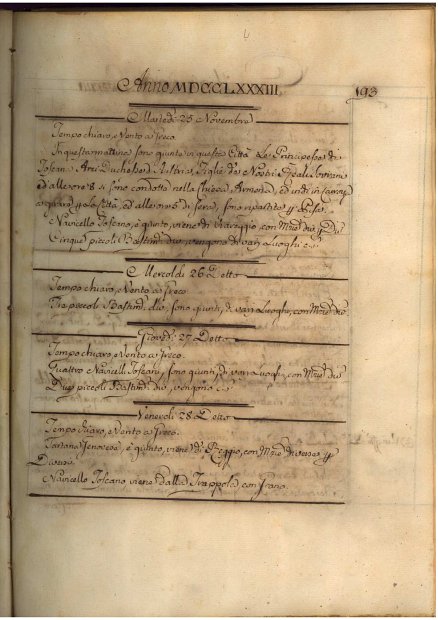 Anno MDCCLXXXIII.
193
Martedì 25 Novembre
Tempo chiaro, e Vento a Greco.
In questa mattina sono giunte in questa Città Le Principesse di
Toscana Arci Duchesse d'Austria, Figlie de Nostri Reali Sovrani
ed alle ore 8 si sono condotte nella Chiesa Armena, ed indi in Carrozza
a girare la Città, ed alle ore di sera, sono ripartite Pisa.
Navicello Toscano, è giunto, viene di Viareggio, con
Cinque piccoli Bastim. vengono da varj Luoghi
Mercoldì 26 Detto
Tempo chiaro, e Vento a Greco.
Tre piccoli Bastim. sono giunti, da varj Luoghi, con
Giovedì 27 Detto
Tempo chiaro, e Vento a Greco.
Quattro Navicelli Toscani, sono giunti, da varj Luoghi, con
Due piccoli Bastim. vengono
Venerdì 28 Detto
Tempo chiaro, e Vento a Greco.
Tartana Genovese, è giunta, viene di Reggio, con diverse
Diversi.
Navicello Toscano viene dalla Trappola con Grano.